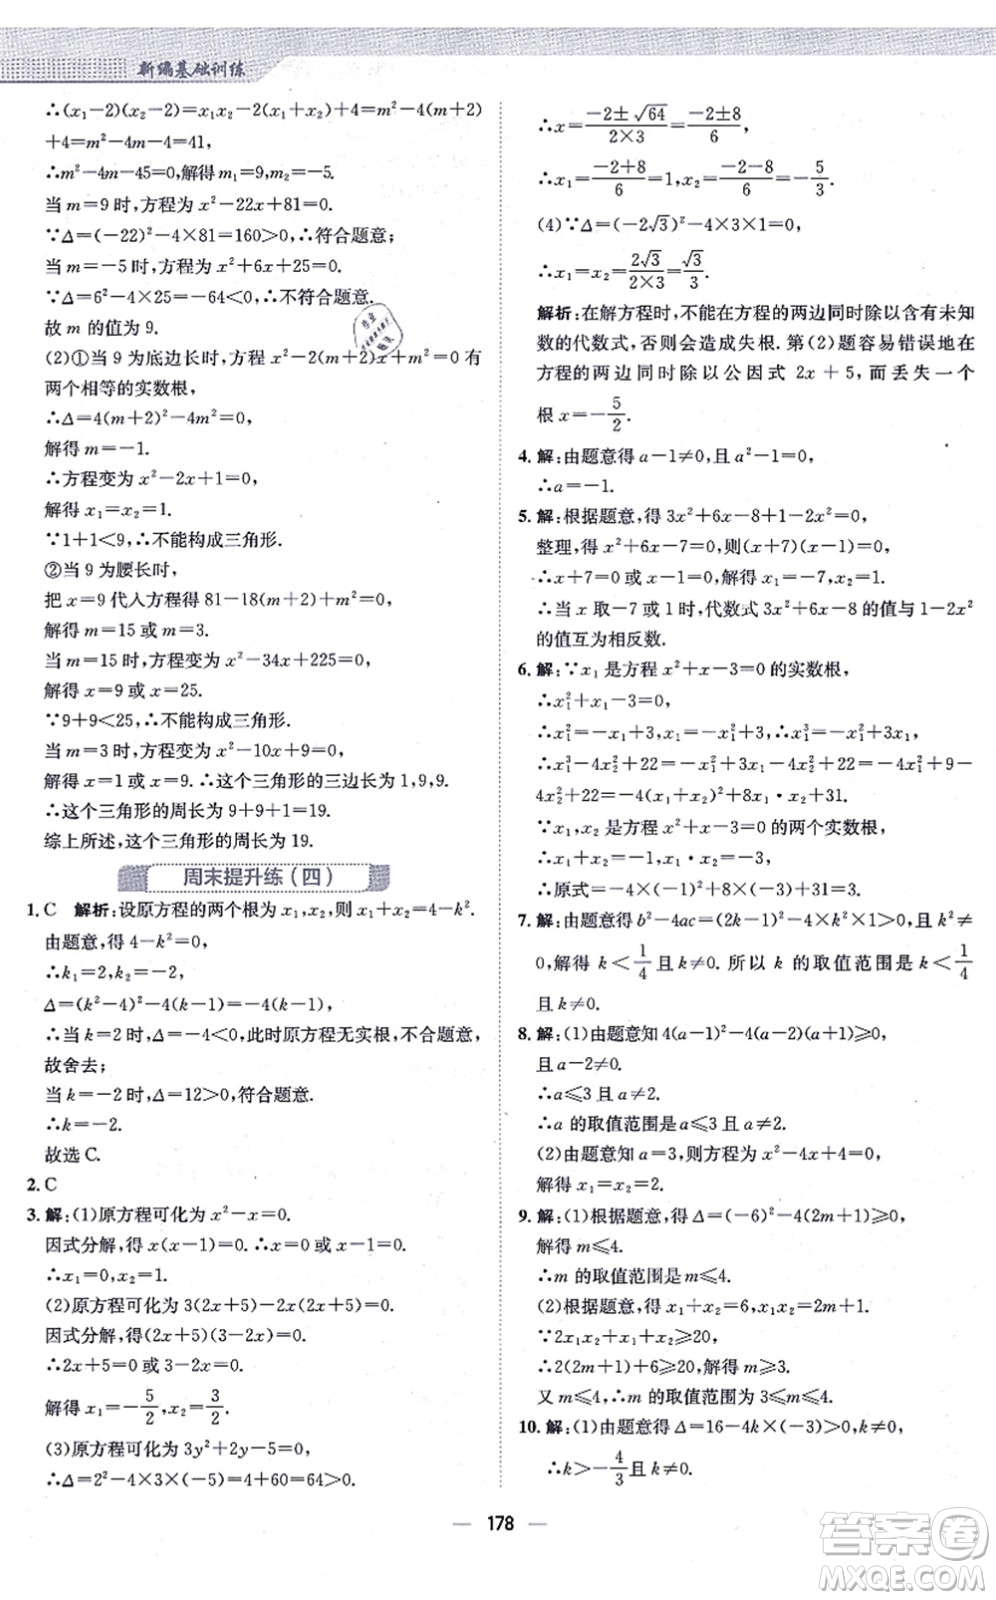 新编基础训练
∴(x₁-2)(x₂-2)=x₁x₂-2(x₁+x₂)+4=m²-4(m+2)
+4=m²-4m-4=41,
∴m²-4m-45=0,解得m₁=9,m₂=-5.
当m=9时,方程为x²-22x+81=0.
∵Δ=(-22)²-4×81=160>0,∴符合题意;
当m=-5时,方程为x²+6x+25=0.
∵Δ=6²-4×25=-64<0,∴不符合题意.
故m的值为9.
(2)①当9为底边长时,方程x²-2(m+2)x+m²=0有
两个相等的实数根,
∴Δ=4(m+2)²-4m²=0,
解得m=-1.
∴方程变为x²-2x+1=0,
解得x₁=x₂=1.
∵1+1<9,∴不能构成三角形.
②当9为腰长时,
把x=9代入方程得81-18(m+2)+m²=0,
解得m=15或m=3.
当m=15时,方程变为x²-34x+225=0,
解得x=9或x=25.
∵9+9<25,∴不能构成三角形.
当m=3时,方程变为x²-10x+9=0,
解得x=1或x=9.∴这个三角形的三边长为1,9,9.
∴这个三角形的周长为9+9+1=19.
综上所述,这个三角形的周长为19.
周末提升练(四)
1. C 解析:设原方程的两个根为x₁,x₂,则x₁+x₂=4-k².
由题意,得4-k²=0,
∴k₁=2,k₂=-2,
Δ=(k²-4)²-4(k-1)=-4(k-1),
∴当k=2时,Δ=-4<0,此时原方程无实根,不合题意,
故舍去;
当k=-2时,Δ=12>0,符合题意.
∴k=-2.
故选C.
2. C
3. 解:(1)原方程可化为x²-x=0.
因式分解,得x(x-1)=0.∴x=0或x-1=0.
∴x₁=0,x₂=1.
(2)原方程可化为3(2x+5)-2x(2x+5)=0.
因式分解,得(2x+5)(3-2x)=0.
∴2x+5=0或3-2x=0.
解得x₁=-5/2,x₂=3/2.
(3)原方程可化为3y²+2y-5=0.
∴Δ=2²-4×3×(-5)=4+60=64>0.
∴x=(-2±√64)/(2×3)=(-2±8)/6,
∴x₁=(-2+8)/6=1,x₂=(-2-8)/6=-5/3.
(4)∵Δ=(-2√3)²-4×3×1=0,
∴x₁=x₂=2√3/(2×3)=√3/3.
解析:在解方程时,不能在方程的两边同时除以含有未知
数的代数式,否则会造成失根.第(2)题容易错误地在
方程的两边同时除以公因式2x+5,而丢失一个
根x=-5/2.
4. 解:由题意得a-1≠0,且a²-1=0,
∴a=-1.
5. 解:根据题意,得3x²+6x-8+1-2x²=0,
整理,得x²+6x-7=0,则(x+7)(x-1)=0,
∴x+7=0或x-1=0,解得x₁=-7,x₂=1.
∴当x取-7或1时,代数式3x²+6x-8的值与1-2x²
的值互为相反数.
6. 解:∵x₁是方程x²+x-3=0的实数根,
∴x₁²+x₁-3=0,
∴x₁²=-x₁+3,x₁=-x₁²+3,∴x₁³=-x₁²+3x₁,
∴x₁³-4x₂²+22=-x₁²+3x₁-4x₂²+22=-4x₁²+9-
4x₂²+22=-4(x₁+x₂)²+8x₁·x₂+31.
∵x₁,x₂是方程x²+x-3=0的两个实数根,
∴x₁+x₂=-1,x₁·x₂=-3,
∴原式=-4×(-1)²+8×(-3)+31=3.
7. 解:由题意得b²-4ac=(2k-1)²-4×k²×1>0,且k²≠
0,解得k<1/4且k≠0.所以k的取值范围是k<1/4
且k≠0.
8. 解:(1)由题意知4(a-1)²-4(a-2)(a+1)≥0,
且a-2≠0.
∴a≤3且a≠2.
∴a的取值范围是a≤3且a≠2.
(2)由题意易得a=3,故方程为x²-4x+4=0,
解得x₁=x₂=2.
9. 解:(1)根据题意,得Δ=(-6)²-4(2m+1)≥0,
解得m≤4.
∴m的取值范围是m≤4.
(2)根据题意,得x₁+x₂=6,x₁x₂=2m+1,
∵2x₁x₂+x₁+x₂≥20,
∴2(2m+1)+6≥20,解得m≥3.
又m≤4,∴m的取值范围为3≤m≤4.
10. 解:(1)由题意得Δ=16-4k×(-3)>0,k≠0,
∴k>-4/3且k≠0.
178
答案圈
MXQE.COM